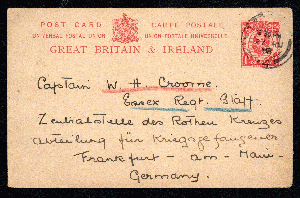 POST CARD CARTE POSTALE
UNIVERSAL POSTAL UNION UNION POSTALE UNIVERSELLE
GREAT BRITAIN & IRELAND
Captain W. H. Croome.
Essex Regt. Staff.
Zentralstelle des Rothen Kreuzes
abteilung für Kriegsgefangener
Frankfurt - am - Main
Germany.